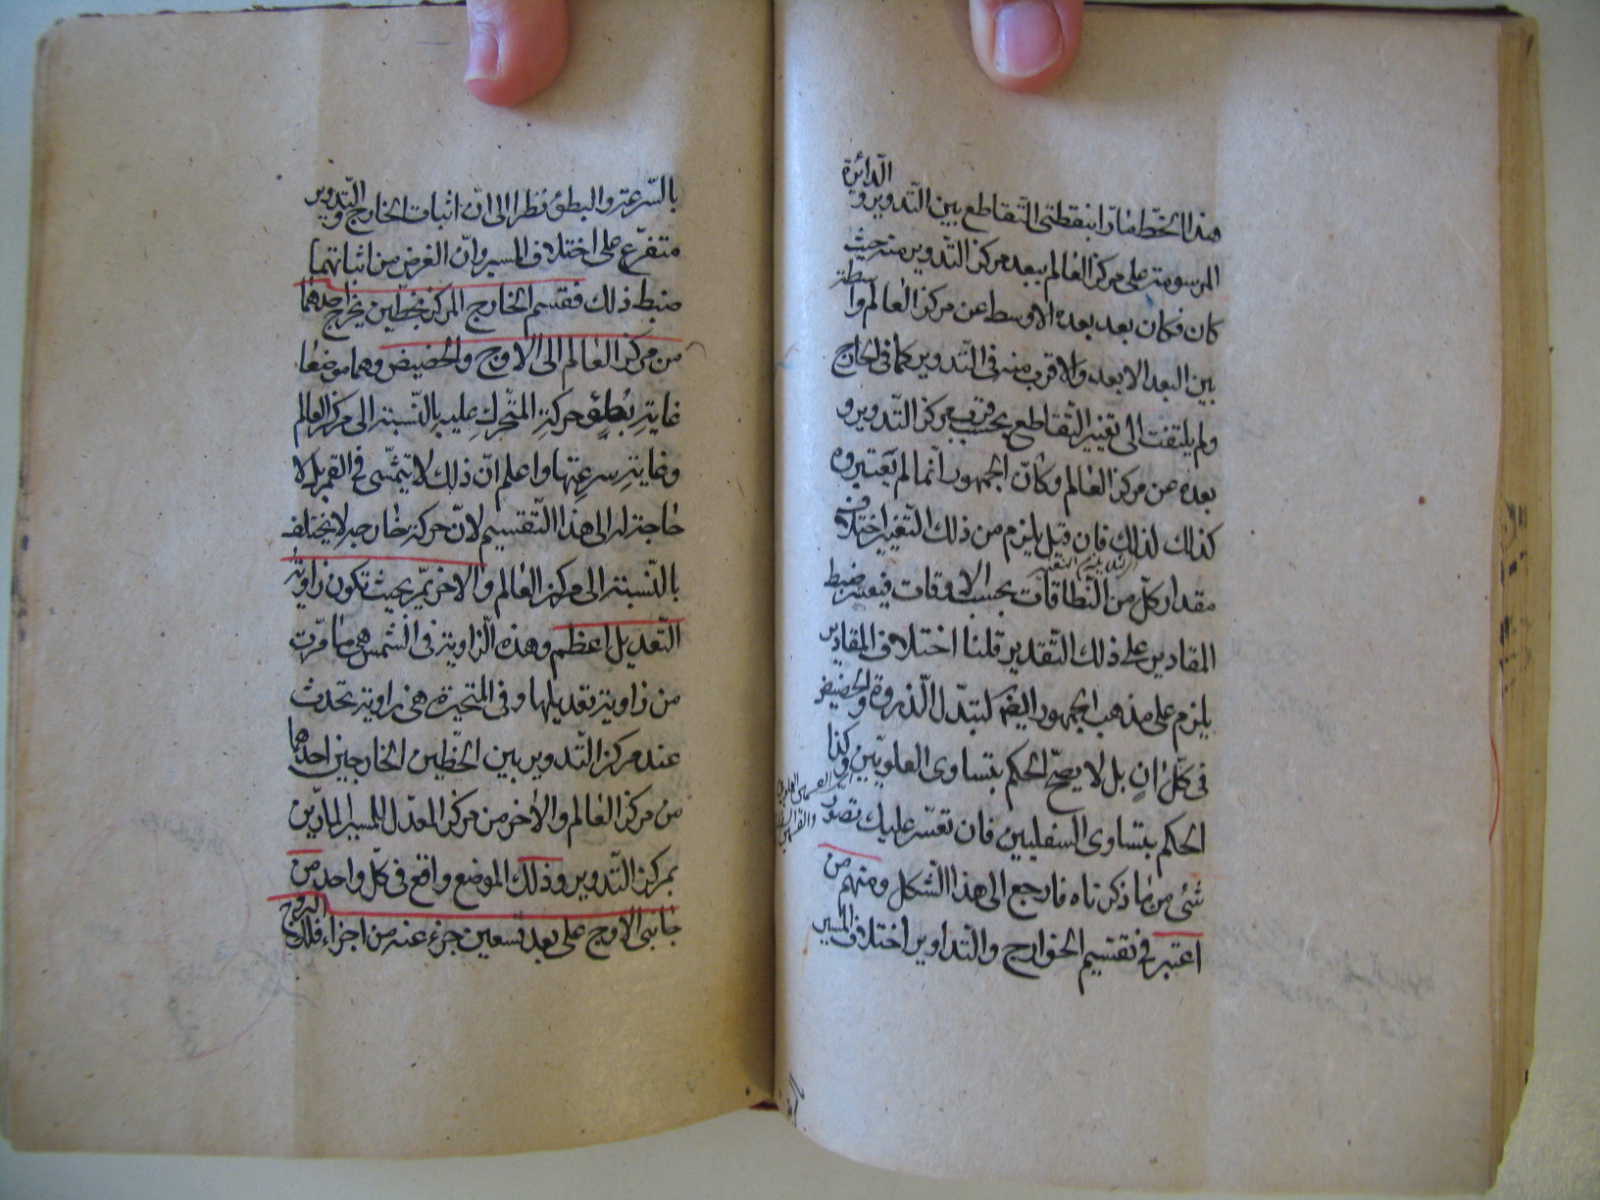 هذا الخط مارّا بنقطتى التّقاطع بين التّدوير و الدّائرة
المرسومة على مركز العالم ببعد مركز التّدوير منه حيث
كان فكان بعد بعده الاوسط عن مركز العالم واسطة
بين البعد الابعد والاقرب منه فى التّدوير كما فى الخارج
ولم يلتفت الى تغيير التّقاطع بحسب قرب مركز التّدوير و
بعده عن مركز العالم وكانّ الجمهور انّما لم يعتبروه
كذلك لذلك فان قيل يلزم من ذلك التّغير اختلاف
مقدار كلّ من النّطاقات بحسب الاوقات فيعسر ضبط
المقادير على ذلك التّقدير قلنا اختلاف المقادير
يلزم على مذهب الجمهور ايضا لتبدّل الذّروة والحضيض
فى كلّ انٍ بل لا يصحّ الحكم بتساوى العلويّين وكذا
الحكم بتساوى السفليين فان تعسّر عليك تصوّر
شئ من ما ذكرناه فارجع الى هذا الشكل ومنهم من
اعتبر فى تقسيم الخوارج والتداوير اختلاف المسير
بالسّرعة والبطؤ نظرا الى انّ اثبات الخارج والتّدوير
متفرّع على اختلاف المسير وانّ الغرض من اثباتهما
ضبط ذلك فقسم الخارج المركز بخطّين يخرج احدهما
من مركز العالم الى الاوج والحضيض وهما موضعا
غاية بُطؤِ حركةِ المتحّرك عليه بالنّسبة الى مركز العالم
وغايةِ سرعتها واعلم انّ ذلك لا يتمشّى فى القمر بل لا
حاجة له الى هذا التّقسيم لانّ حركة خارجه لا يختلف
بالنّسبة الى مركز العالم والاخر يمّر بحيث تكون زاوية
التّعديل اعظم وهذه الزاوية فى الشمس هى ما مرّت
من زاوية تعديلها وفى المتحيرة هى زاوية تحدث
عند مركز التّدوير بين الخطّين الخارجين احدهما
من مركز العالم والاخر من مركز المعدّل للمسير المارّين
بمركز التّدوير وذلك الموضع واقع فى كلّ واحد من
جانبى الاوج على بعد تسعين جزء عنه من اجزاء فلك البروج